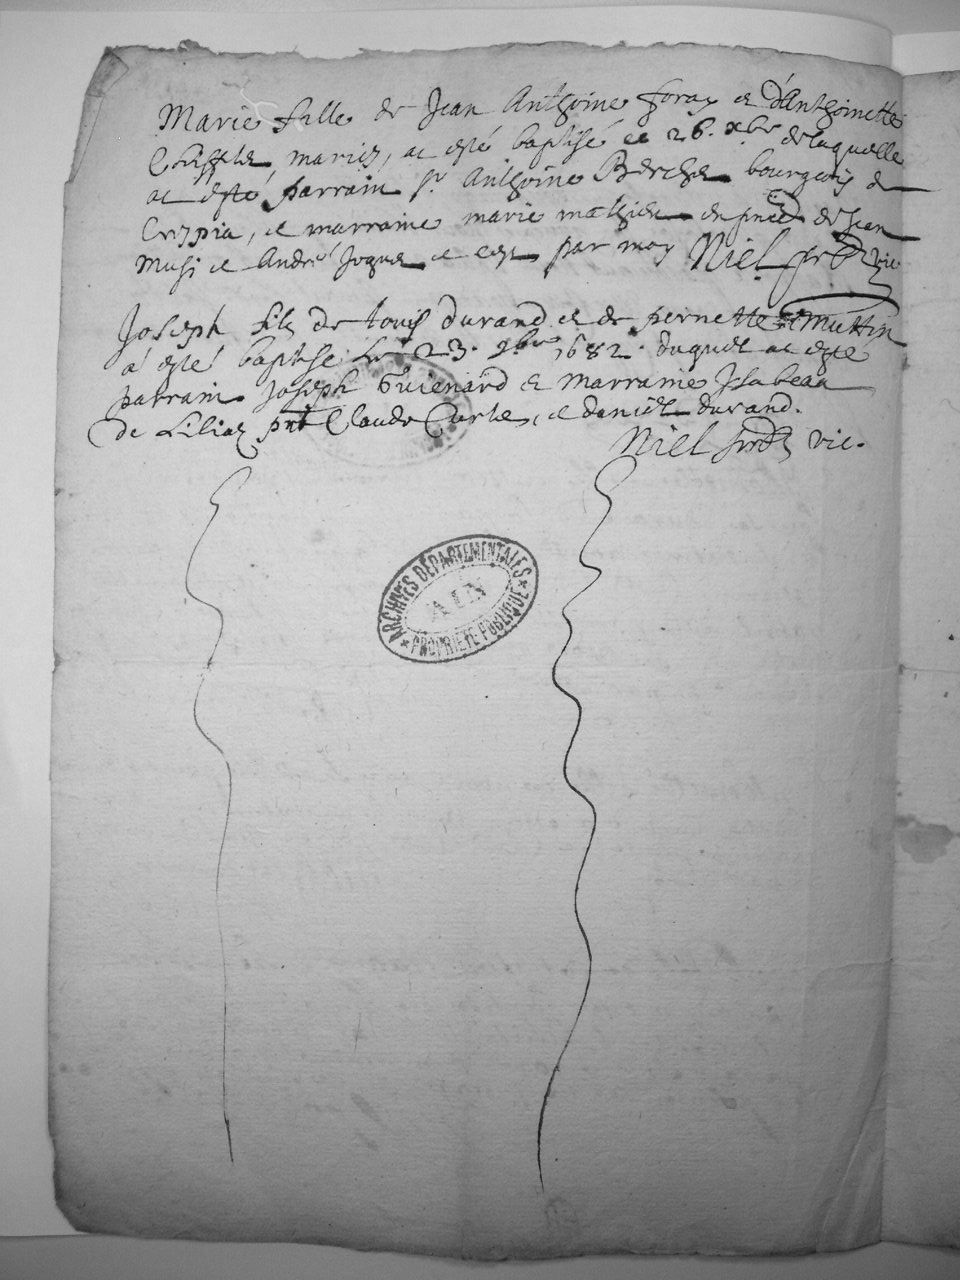 Marie fille de Jean Anthoine foray et d'Anthoinette
mariez, at esté baptisé le 26. xbre de laquelle
at esté parrain sr Anthoine Berchet bourgeois de
Crispia, et marraine marie mathieu en pnce de Jean
Musi et André Joguet et est par moy Niel vic
Joseph filz de louis durand et de pernette Muttin
a esté baptise le 23. 9bre 1682. duquel at este
parrain Joseph Guienard et Marraine Isabeau
de Liliaz pnt Claude Curtet, et daniel durand.
Niel vic.
ARCHIVES DÉPARTEMENTALES
AIN
PROPRIÉTÉ PUBLIQUE